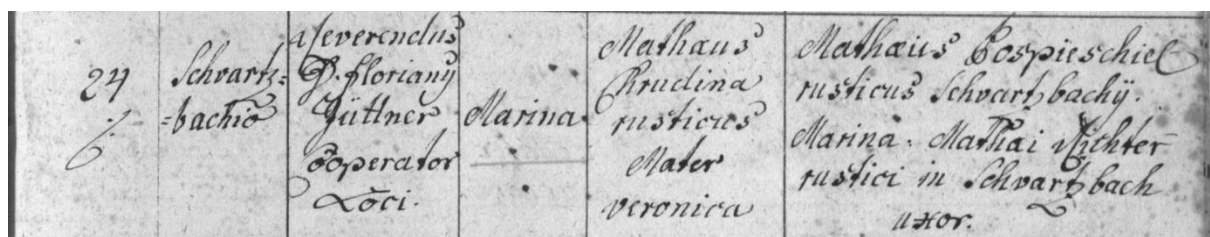 24
Schvartz=
=bachio
Reverendus
D. Floriany
Jüttner
Cooperator
Loci.
Marina
Mathæus
Chrudina
rusticus
Mater
veronica
Mathæus Pospieschiel
rusticus Schvartzbachÿ.
Marina. Mathæi Richter
rustici in Schvartzbach
uxor.